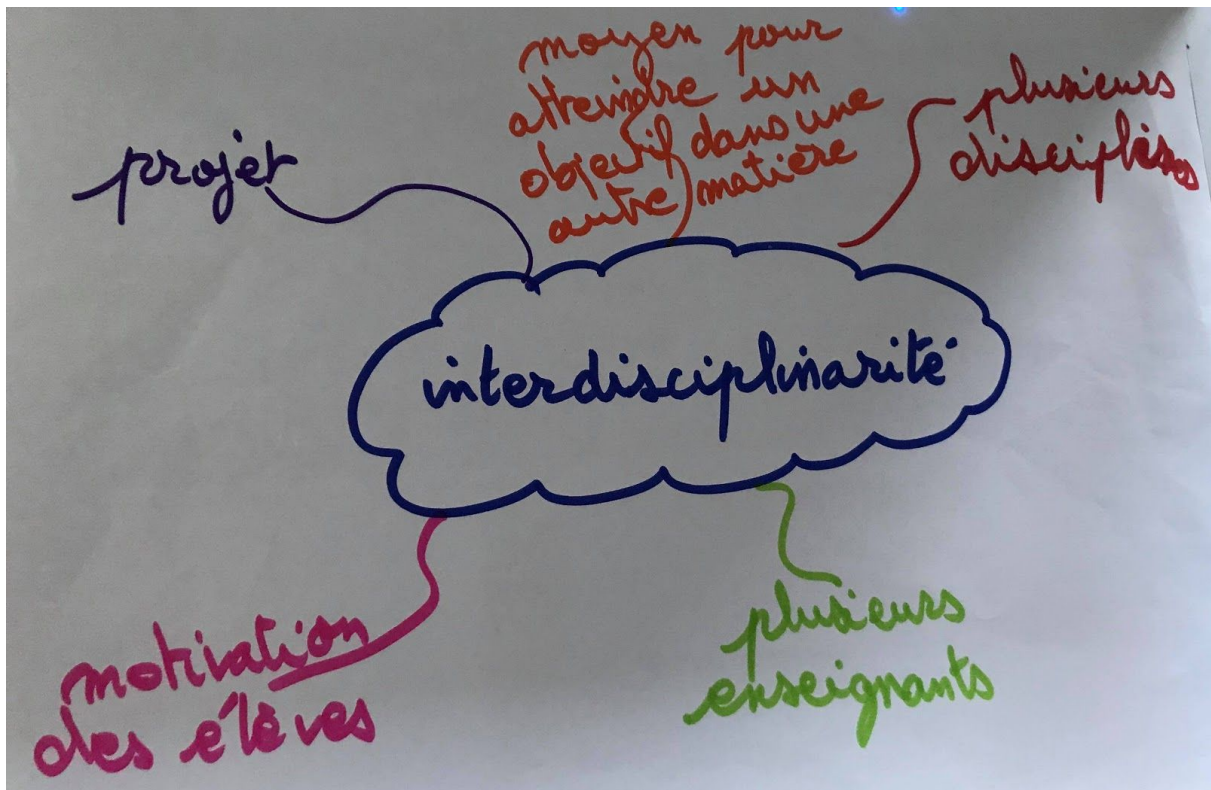 moyen pour
atteindre un
objectif dans une
autre matière
plusieurs
disciplines
projet
interdisciplinarité
motivation
des élèves
plusieurs
enseignants